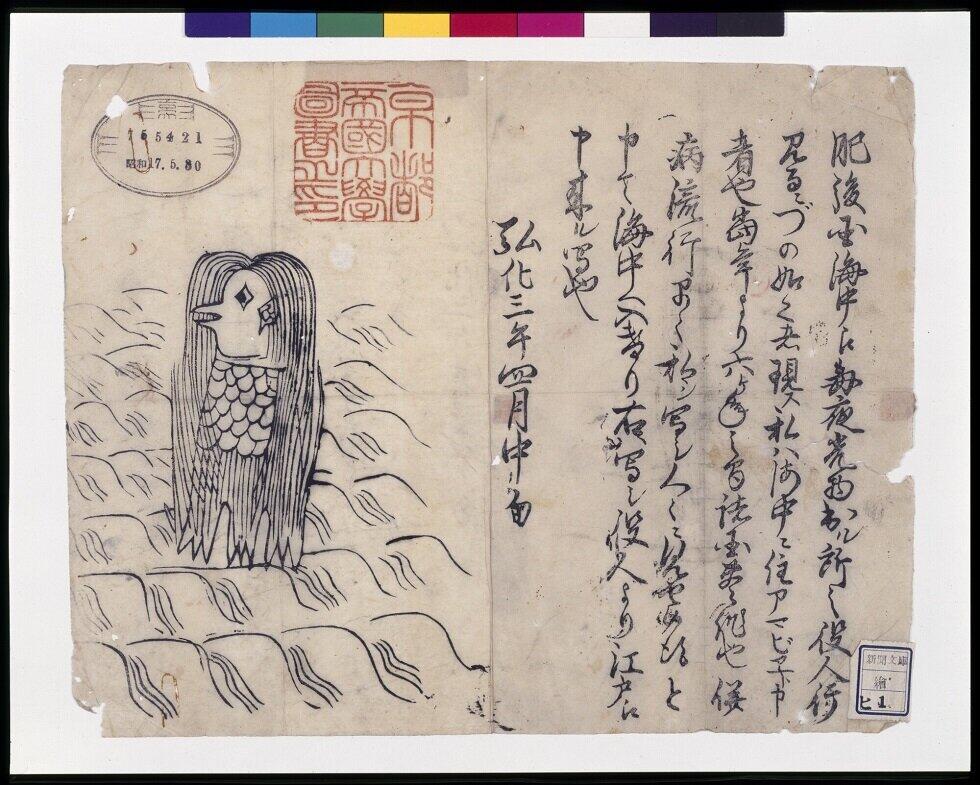 肥後国海中え毎夜光物出ル所之役人行
見るニづの如く者現ス私ハ海中ニ住アマビヱト申
者也当年より六ヶ年之間諸国豊作也併
病流行早々私シ写シ人々ニ見セ候得と
申て海中へ入けり右写シ役人より江戸え
申来ル写也
弘化三年四月中旬
京都
帝國大學
圖書之印
昭和17.5.30
新聞文庫
繪
ヒ 1